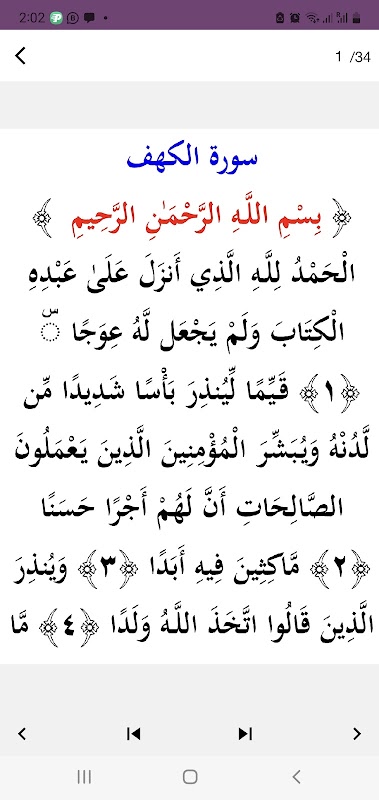 2:02
1 /34
سورة الكهف
﴿ بِسْمِ اللَّهِ الرَّحْمَٰنِ الرَّحِيمِ ﴾
الْحَمْدُ لِلَّهِ الَّذِي أَنزَلَ عَلَىٰ عَبْدِهِ
الْكِتَابَ وَلَمْ يَجْعَل لَّهُ عِوَجًا ۜ
﴿١﴾ قَيِّمًا لِّيُنذِرَ بَأْسًا شَدِيدًا مِّن
لَّدُنْهُ وَيُبَشِّرَ الْمُؤْمِنِينَ الَّذِينَ يَعْمَلُونَ
الصَّالِحَاتِ أَنَّ لَهُمْ أَجْرًا حَسَنًا
﴿٢﴾ مَّاكِثِينَ فِيهِ أَبَدًا ﴿٣﴾ وَيُنذِرَ
الَّذِينَ قَالُوا اتَّخَذَ اللَّهُ وَلَدًا ﴿٤﴾ مَّا